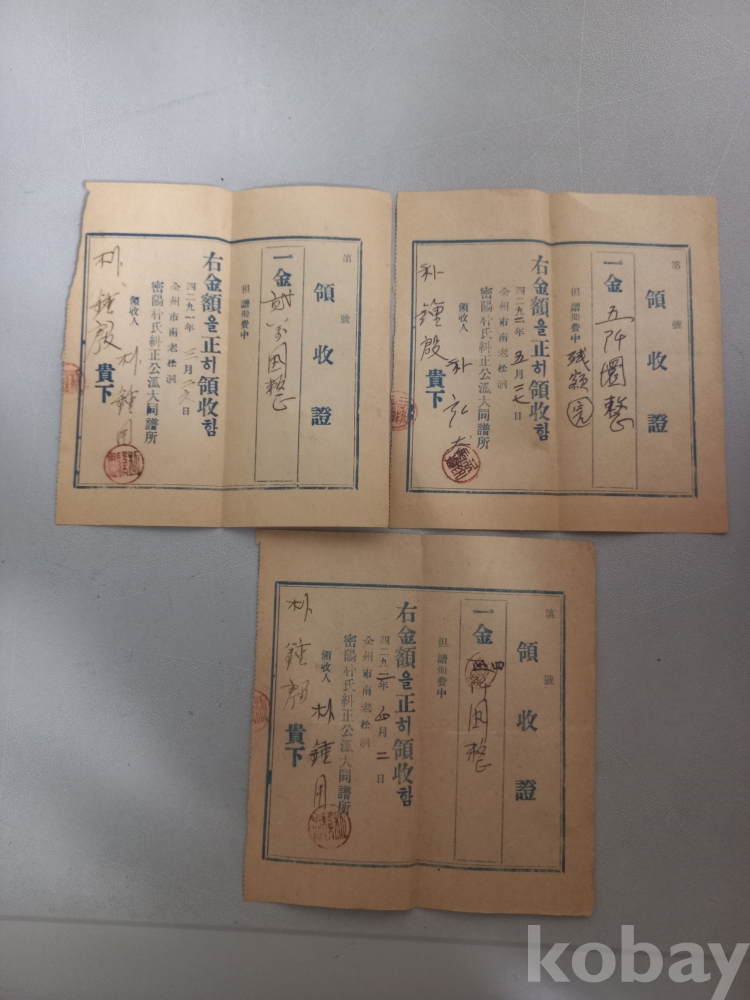 第 號
領收證
一金 五阡圜整
但 譜冊費中 残額 完
右金額을正히領收함
四二九二年 五月 二七日
全州市南老松洞
密陽朴氏糾正公派大同譜所
領收人 朴
朴鍾殷 貴下
領收證
一金 圜整
但 譜冊費中
右金額을正히領收함
四二九一年 三月 日
全州市南老松洞
密陽朴氏糾正公派大同譜所
領收人 朴鍾
朴鍾殷 貴下
第 號
領收證
一金 圜整
但 譜冊費中
右金額을正히領收함
四二九二年 五月 二日
全州市南老松洞
密陽朴氏糾正公派大同譜所
領收人 朴鍾
朴鍾殷 貴下
kobay